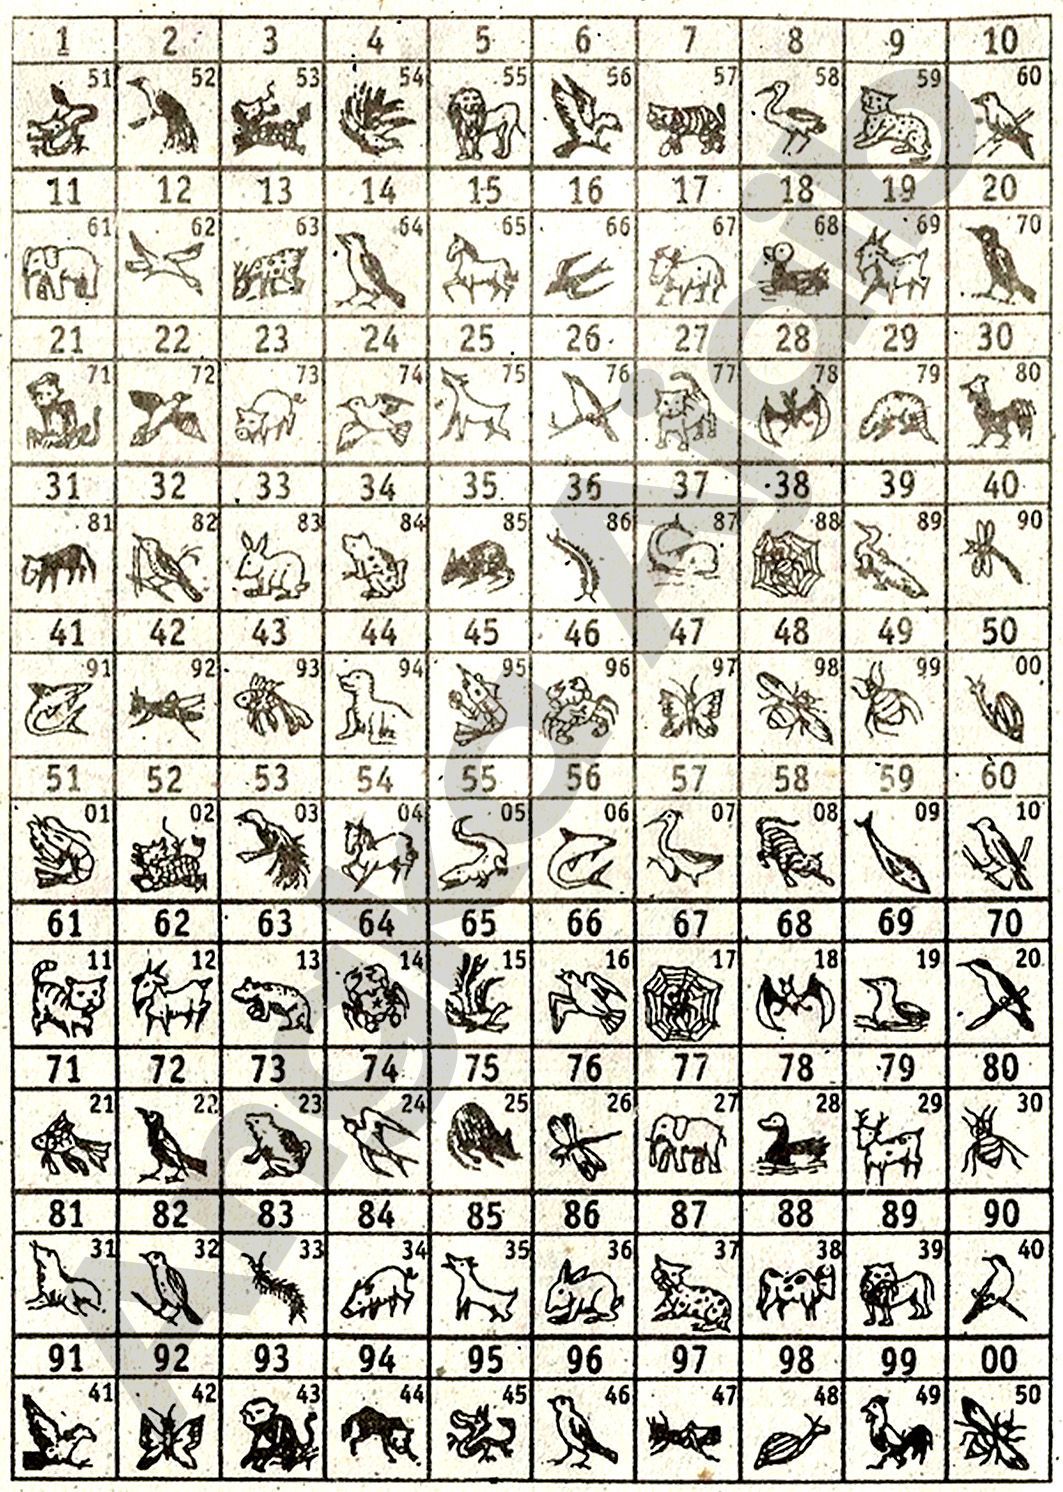 1 2 3 4 5 6 7 8 9 10
51 52 53 54 55 56 57 58 59 60
11 12 13 14 15 16 17 18 19 20
61 62 63 64 65 66 67 68 69 70
21 22 23 24 25 26 27 28 29 30
71 72 73 74 75 76 77 78 79 80
31 32 33 34 35 36 37 38 39 40
81 82 83 84 85 86 87 88 89 90
41 42 43 44 45 46 47 48 49 50
91 92 93 94 95 96 97 98 99 00
51 52 53 54 55 56 57 58 59 60
01 02 03 04 05 06 07 08 09 10
61 62 63 64 65 66 67 68 69 70
11 12 13 14 15 16 17 18 19 20
71 72 73 74 75 76 77 78 79 80
21 22 23 24 25 26 27 28 29 30
81 82 83 84 85 86 87 88 89 90
31 32 33 34 35 36 37 38 39 40
91 92 93 94 95 96 97 98 99 00
41 42 43 44 45 46 47 48 49 50
Angka Ajaib